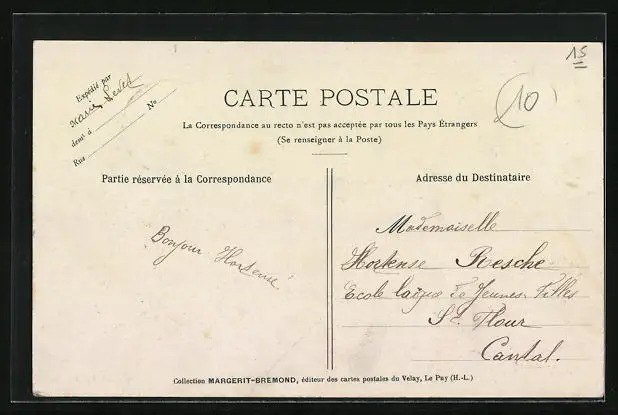 15
Expédié par
Marie
demt à No
Rue
(10)
CARTE POSTALE
La Correspondance au recto n'est pas acceptée par tous les Pays Étrangers
(Se renseigner à la Poste)
Partie réservée à la Correspondance
Bonjour Hortense!
Adresse du Destinataire
Mademoiselle
Hortense Resche
Ecole laïque de Jeunes Filles
St Flour
Cantal.
Collection MARGERIT-BREMOND, éditeur des cartes postales du Velay, Le Puy (H.-L.)